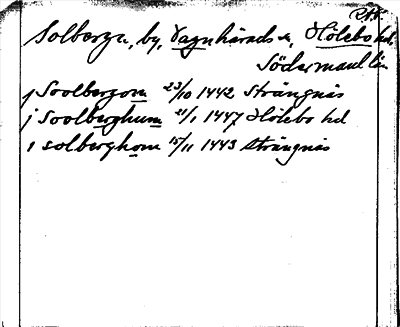 RA.
Solberga, by, Vagnhärads sn, Hölebo hd,
Södermanl län
j Soolbergom 23/10 1442 Strängnäs
j Soolberghum 21/1 1447 Hölebo hd
i solberghom 15/11 1443 Strängnäs